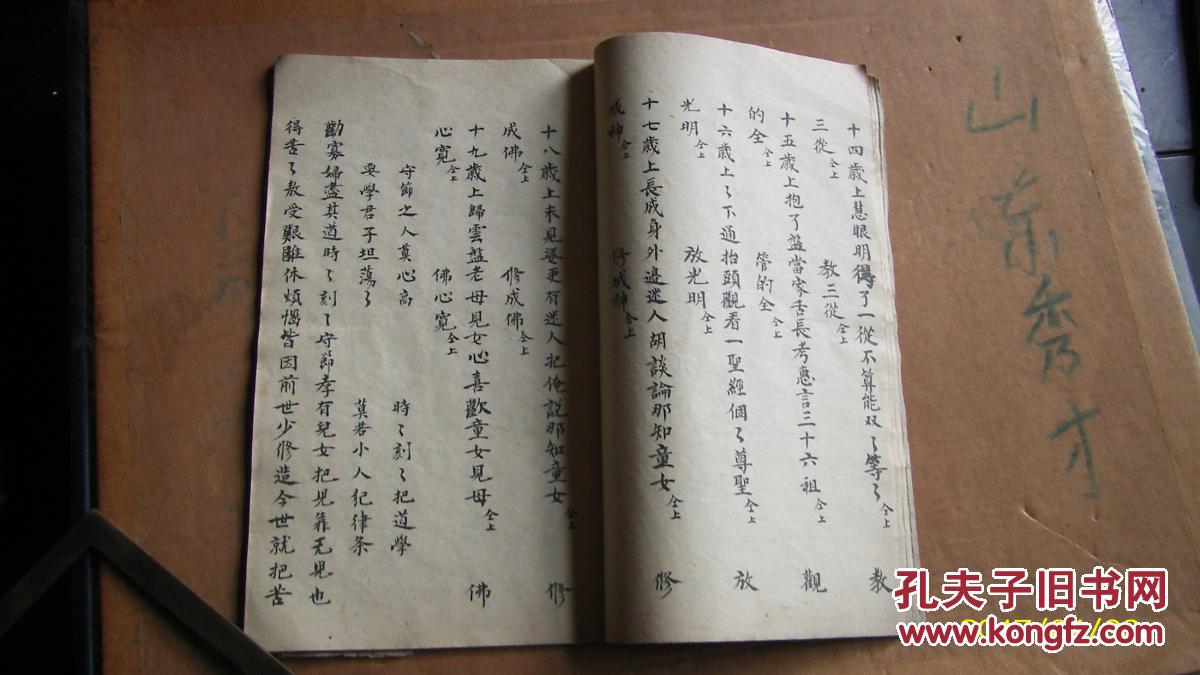 十四歲上慧眼明得了一從不算能双〻等〻仝上 教
三從仝上 教三從仝上
十五歲上抱了盤當家舌長考惠言三十六祖仝上 觀
的全仝上 管的全仝上
十六歲上〻下通抬頭觀看一聖經個〻尊聖仝上 放
光明仝上 放光明仝上
十七歲上長成身外邊迷人胡談論那知童女仝上 修
成神仝上 修成神仝上
十八歲上未見婆更有迷人把俺説那知童女仝上 修
成佛仝上 修成佛仝上
十九歲上歸雲盤老母見女心喜歡童女見母仝上 佛
心寬仝上 佛心寬仝上
守節之人莫心高 時〻刻〻把道學
要學君子坦蕩〻 莫若小人犯律条
勸寡婦盡其道時〻刻〻守節孝有兒女把兒靠无兒也
得苦〻熬受艱難休煩惱皆因前世少修造今世就把苦
山东秀才
孔夫子旧书网
www.kongfz.com